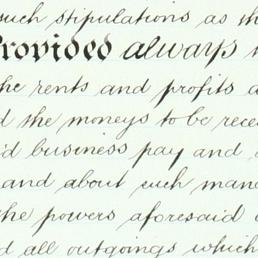 such stipulations as th
Provided always
the rents and profits a
d the moneys to be rece
id business pay and
and about such mane
the powers aforesaid
d all outgoings which